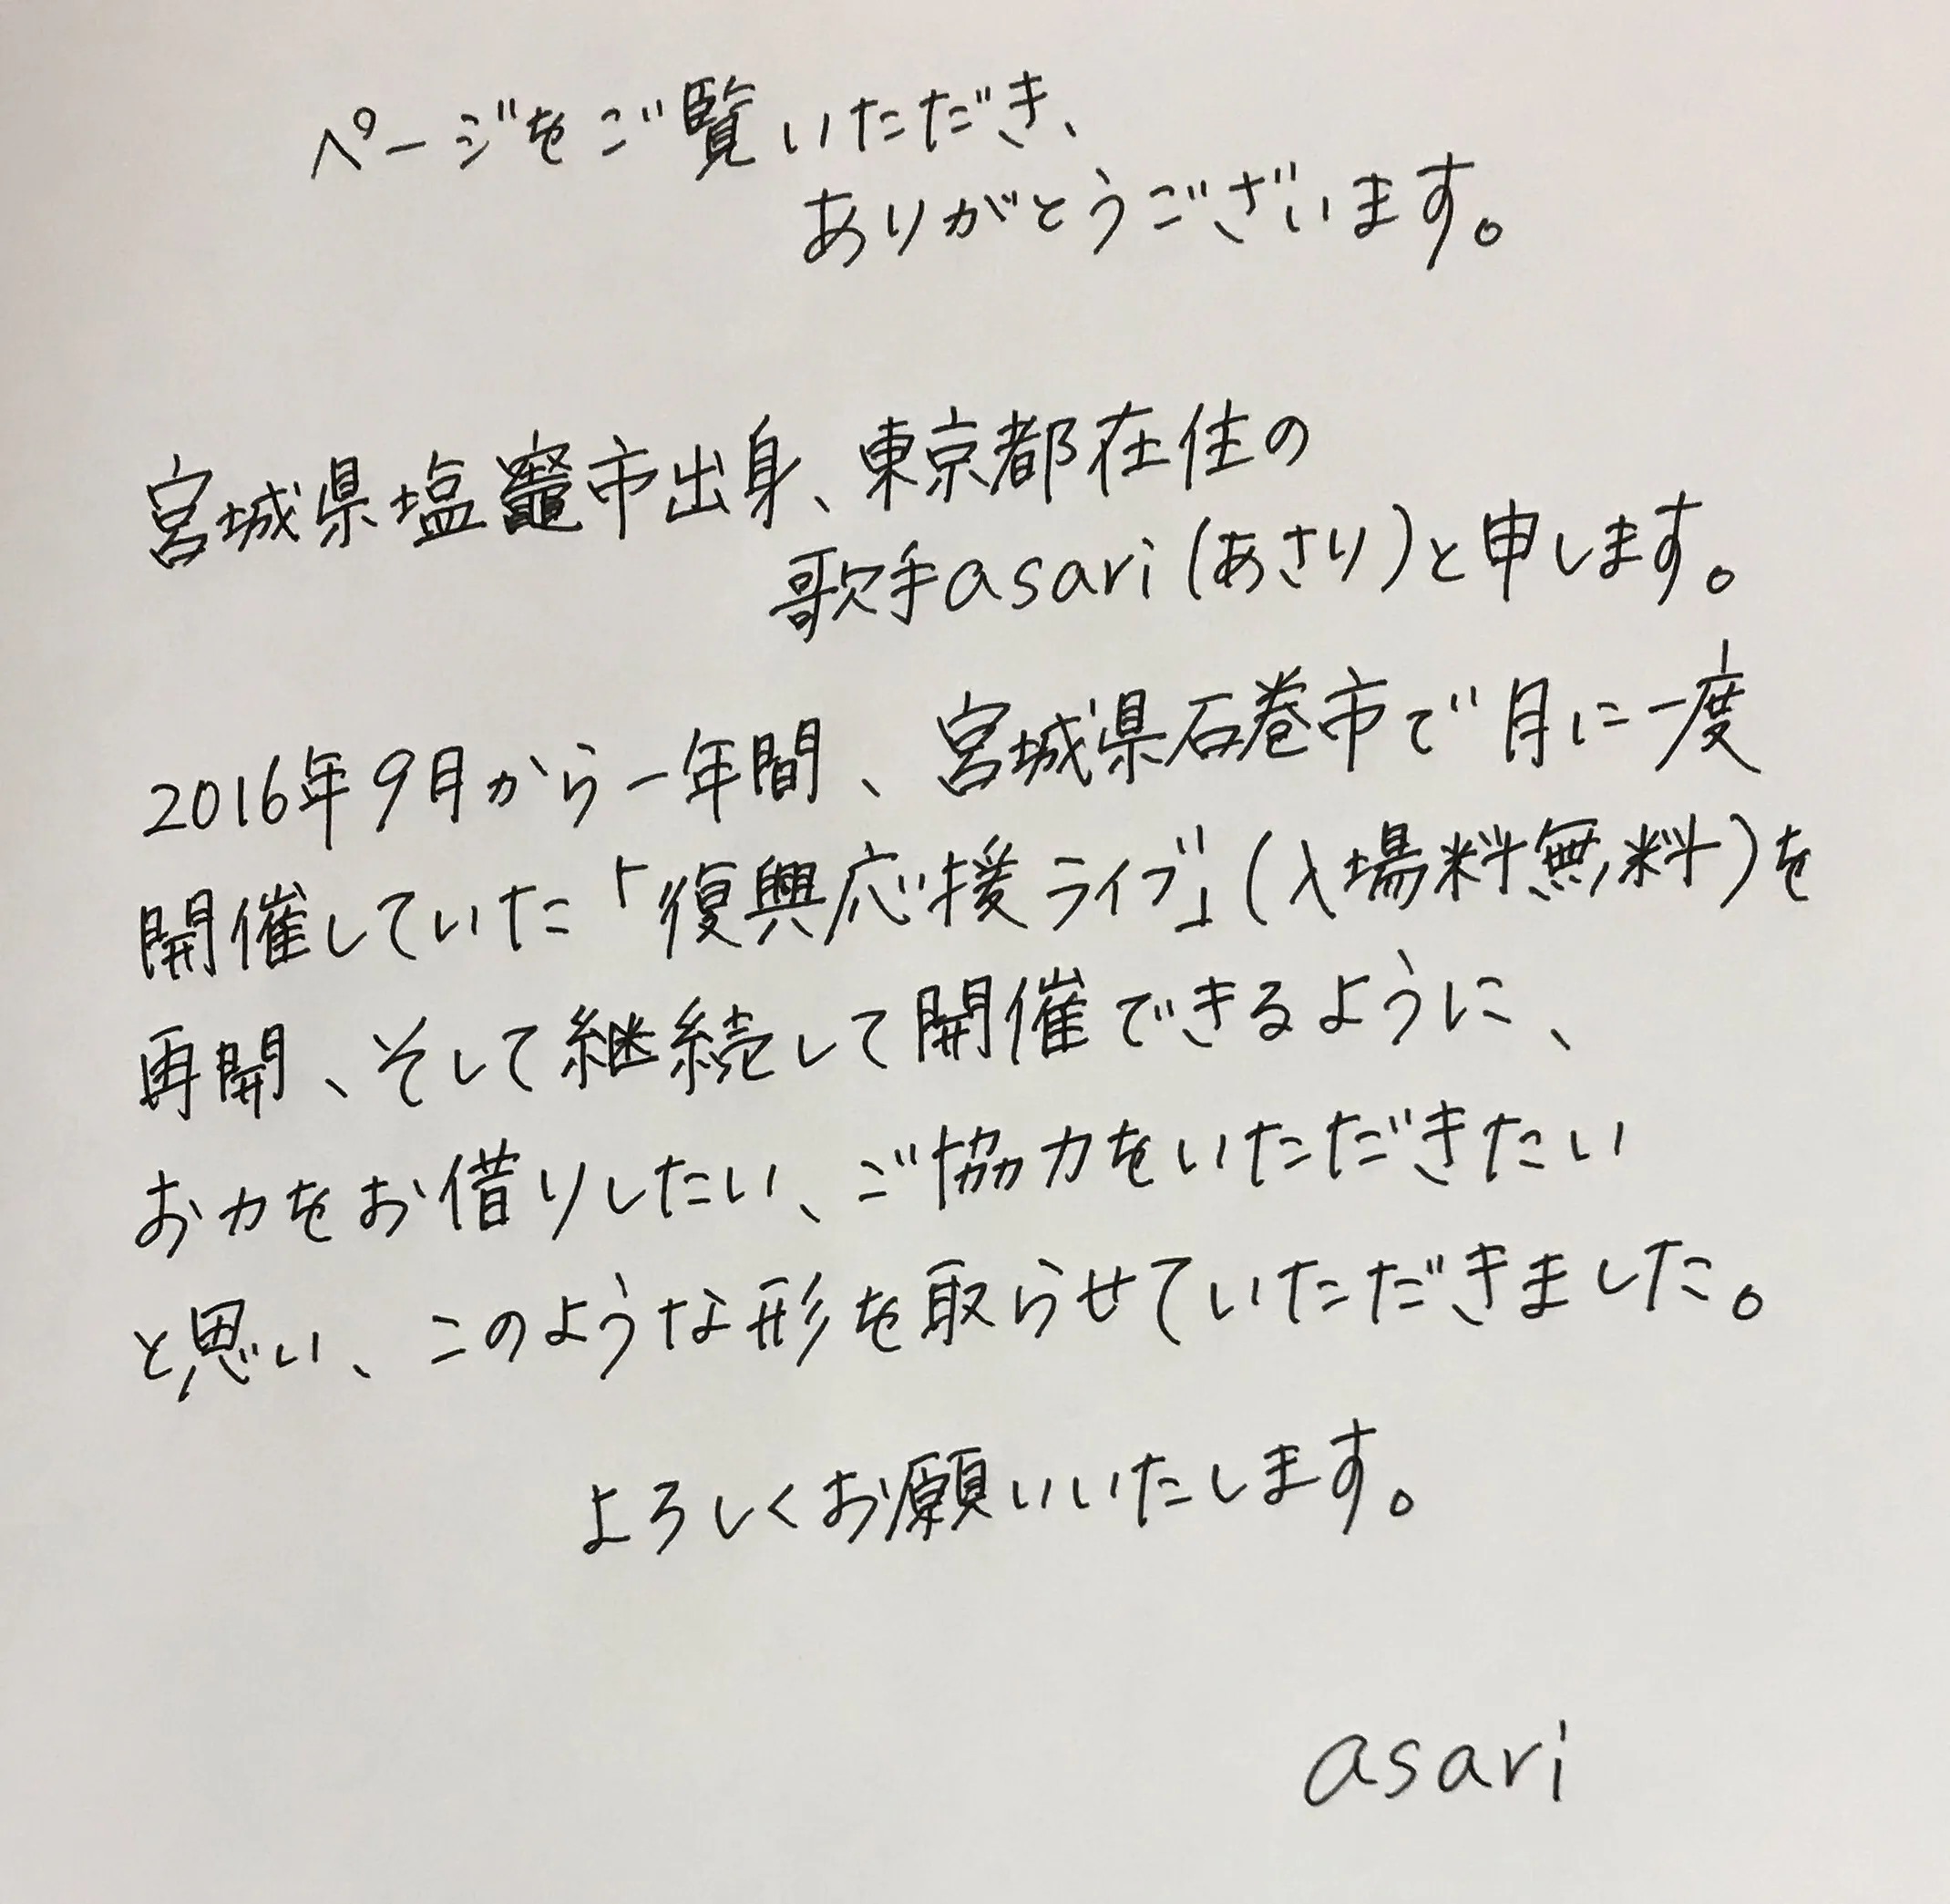 ページをご覧いただき、
ありがとうございます。
宮城県塩竈市出身、東京都在住の
歌手asari(あさり)と申します。
2016年9月から一年間、宮城県石巻市で月に一度
開催していた「復興応援ライブ」(入場料無料)を
再開、そして継続して開催できるように、
お力をお借りしたい、ご協力をいただきたい
と思い、このような形を取らせていただきました。
よろしくお願いいたします。
asari